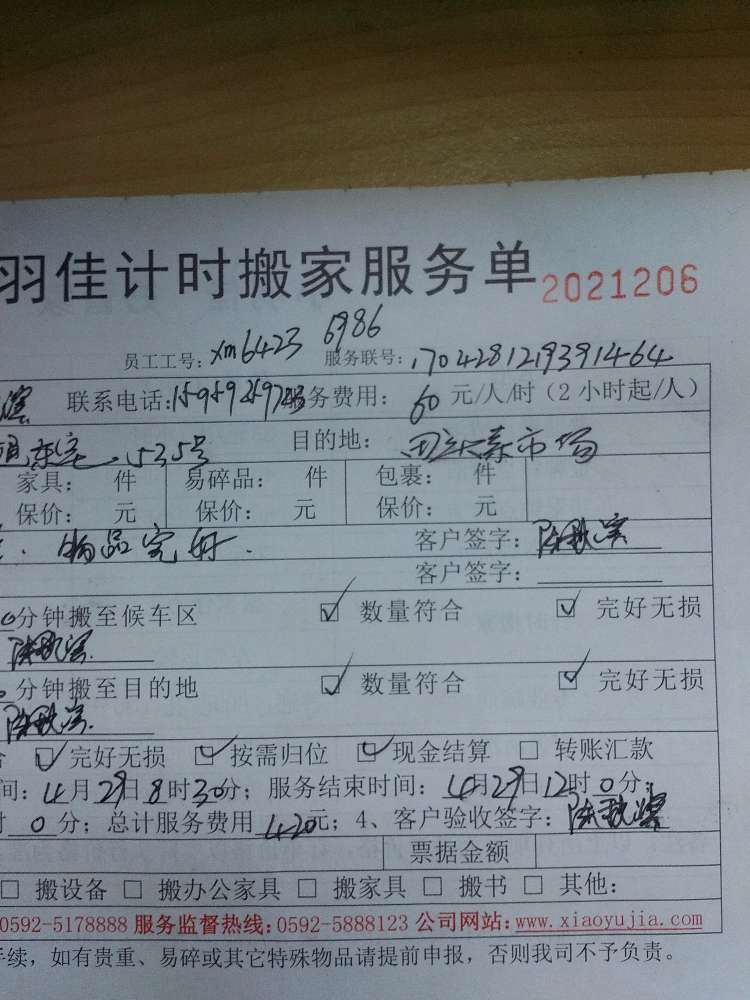 羽佳计时搬家服务单 2021206
员工工号: xm6423 6986 服务联号: 1704281219391464
联系电话: 服务费用: 60 元/人/时（2 小时起/人）
535号 目的地: 市场
家具: 件 易碎品: 件 包裹: 件
保价: 元 保价: 元 保价: 元
物品完好. 客户签字:
客户签字:
0分钟搬至候车区 ☑ 数量符合 ☑ 完好无损
分钟搬至目的地 ☑ 数量符合 ☑ 完好无损
☑ 完好无损 ☑ 按需归位 ☑ 现金结算 □ 转账汇款
间: 4月29日8时30分; 服务结束时间: 4月29日12时0分;
时 0 分; 总计服务费用 420元; 4、客户验收签字:
票据金额
□ 搬设备 □ 搬办公家具 □ 搬家具 □ 搬书 □ 其他:
0592-5178888 服务监督热线: 0592-5888123 公司网站: www.xiaoyujia.com
手续，如有贵重、易碎或其它特殊物品请提前申报，否则我司不予负责。